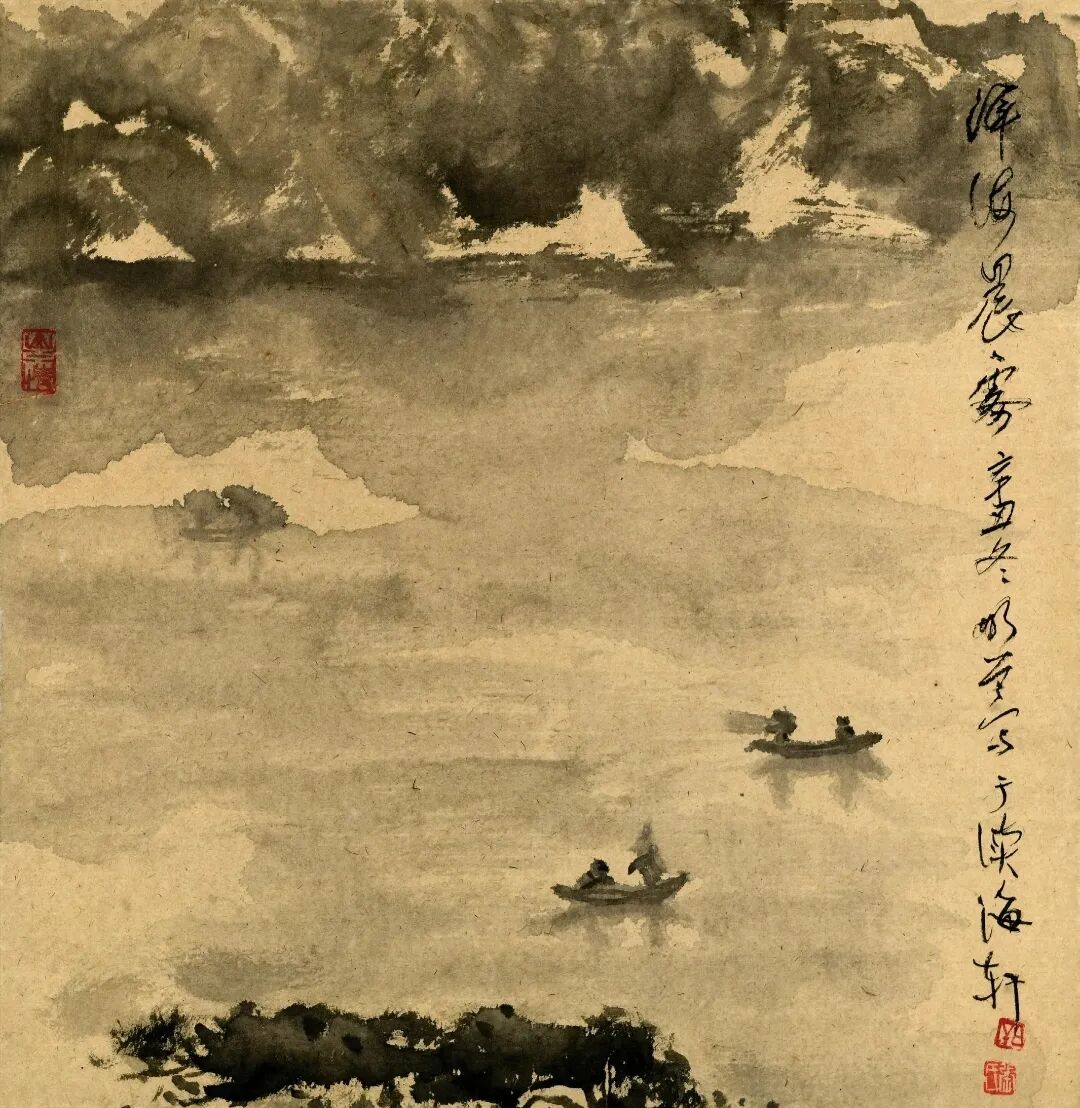 洱海晨雾 辛丑冬 明 写于读海轩